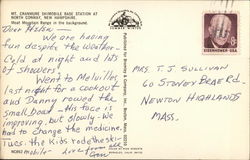 MT. CRANMORE SKIMOBILE BASE STATION AT
NORTH CONWAY, NEW HAMPSHIRE.
West Moat Range in the background.
Dear
We are having
fun despite the weather.
Cold at night and lots
of showers!
Went to Melvilles
last night for a cookout
and Danny rowed the
small boat. His face is
improving, but slowly. We
had to change the medicine.
Tues. the Kids rode the ski-
mobile. Love from
EISENHOWER · USA
MRS. T. J. SULLIVAN
60 STONEY BRAE RD.
NEWTON HIGHLANDS
MASS.